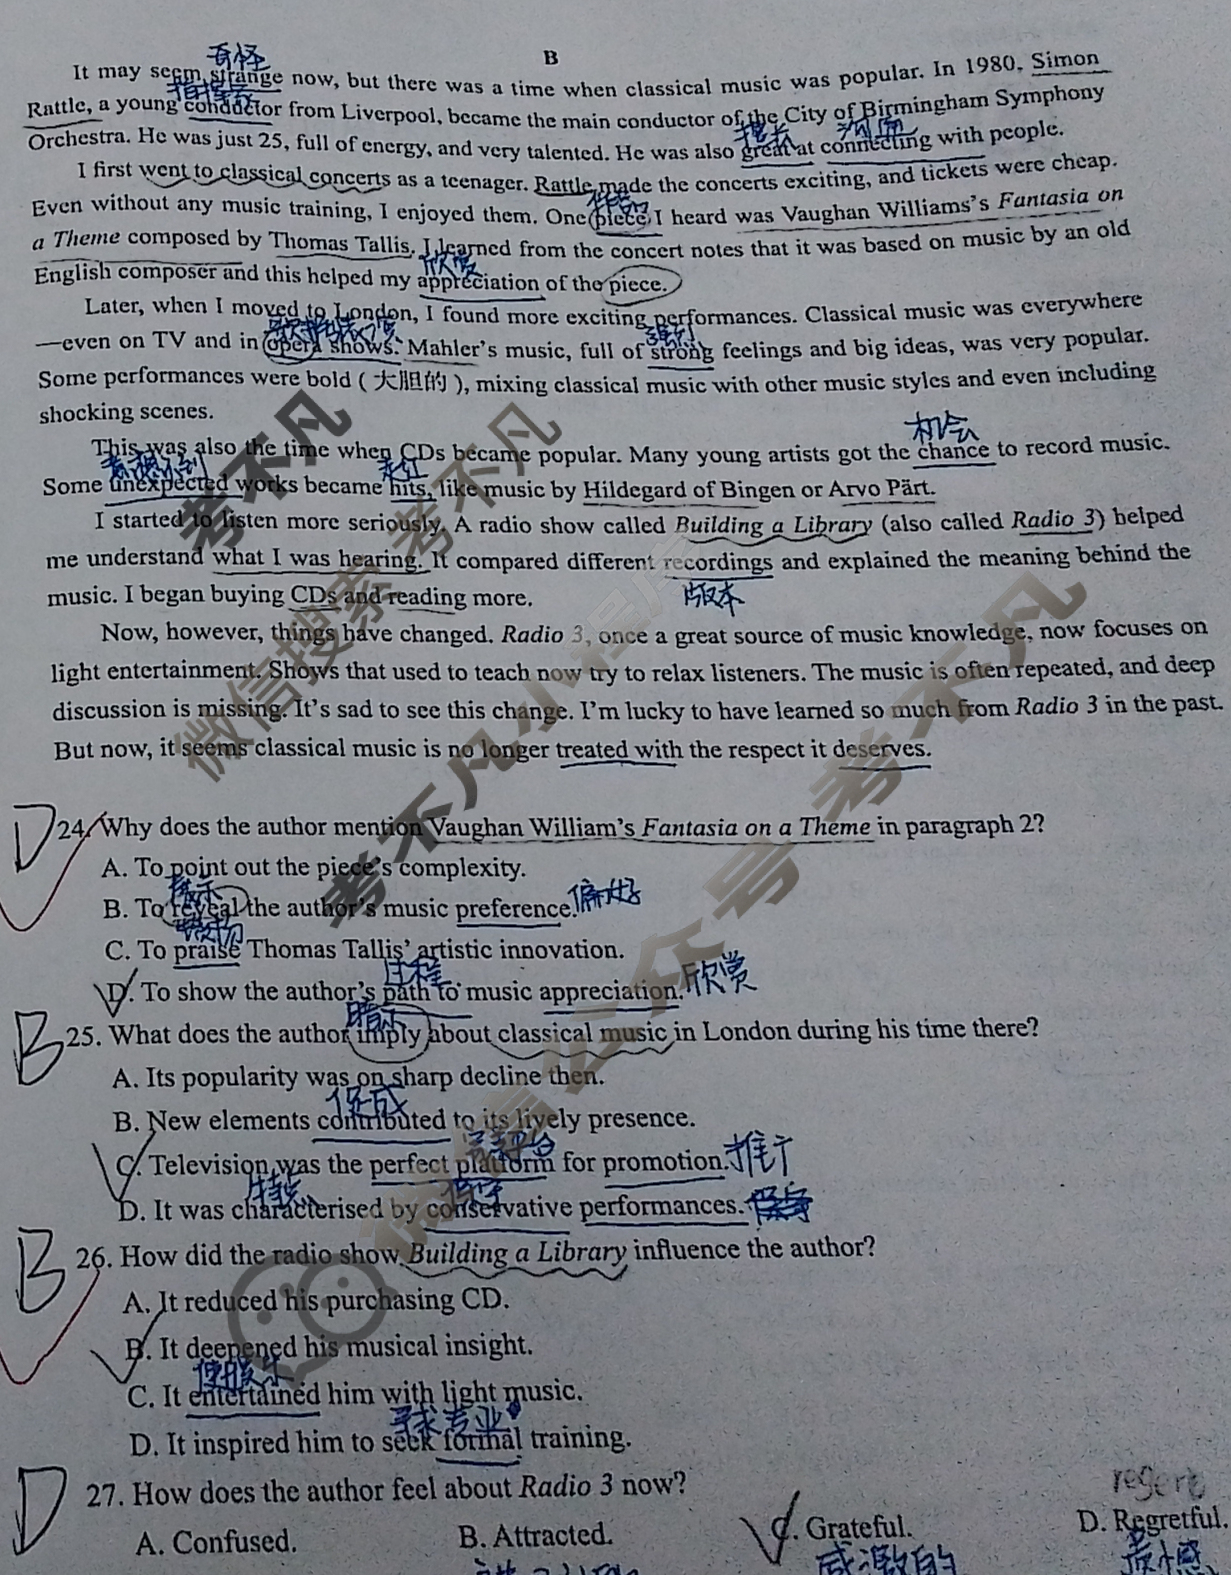 奇怪
B
It may seem strange now, but there was a time when classical music was popular. In 1980, Simon
指挥家
Rattle, a young conductor from Liverpool, became the main conductor of the City of Birmingham Symphony
擅长 沟通
Orchestra. He was just 25, full of energy, and very talented. He was also great at connecting with people.
I first went to classical concerts as a teenager. Rattle made the concerts exciting, and tickets were cheap.
Even without any music training, I enjoyed them. One piece I heard was Vaughan Williams's Fantasia on
a Theme composed by Thomas Tallis. I learned from the concert notes that it was based on music by an old
欣赏
English composer and this helped my appreciation of the piece.
Later, when I moved to London, I found more exciting performances. Classical music was everywhere
强烈
—even on TV and in opera shows. Mahler's music, full of strong feelings and big ideas, was very popular.
Some performances were bold ( 大胆的 ), mixing classical music with other music styles and even including
shocking scenes.
机会
This was also the time when CDs became popular. Many young artists got the chance to record music.
意想不到 走红
Some unexpected works became hits, like music by Hildegard of Bingen or Arvo Pärt.
I started to listen more seriously. A radio show called Building a Library (also called Radio 3) helped
me understand what I was hearing. It compared different recordings and explained the meaning behind the
版本
music. I began buying CDs and reading more.
Now, however, things have changed. Radio 3, once a great source of music knowledge, now focuses on
light entertainment. Shows that used to teach now try to relax listeners. The music is often repeated, and deep
discussion is missing. It's sad to see this change. I'm lucky to have learned so much from Radio 3 in the past.
But now, it seems classical music is no longer treated with the respect it deserves.
D 24. Why does the author mention Vaughan William's Fantasia on a Theme in paragraph 2?
A. To point out the piece's complexity.
揭示
B. To reveal the author's music preference. 偏好
赞扬
C. To praise Thomas Tallis' artistic innovation.
过程
D. To show the author's path to music appreciation. 欣赏
暗示
B 25. What does the author imply about classical music in London during his time there?
A. Its popularity was on sharp decline then.
促成
B. New elements contributed to its lively presence.
完美平台
C. Television was the perfect platform for promotion. 推广
特点 保守
D. It was characterised by conservative performances.
B 26. How did the radio show Building a Library influence the author?
A. It reduced his purchasing CD.
B. It deepened his musical insight.
使娱乐
C. It entertained him with light music.
寻求专业
D. It inspired him to seek formal training.
D 27. How does the author feel about Radio 3 now?
regert
A. Confused. B. Attracted. C. Grateful. D. Regretful.
感激的 遗憾
考不凡
微信搜索 考不凡
考不凡小程序
微信公众号 考不凡